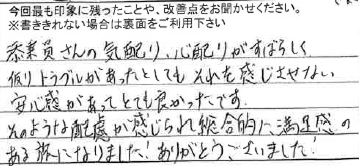 今回最も印象に残ったことや、改善点をお聞かせください。
※書ききれない場合は裏面をご利用下さい
添乗員さんの気配り、心配りがすばらしく
仮りトラブルがあったとしてもそれを感じさせない
安心感があってとても良かったです。
そのような配慮が感じられ総合的に満足感の
ある旅になりました!ありがとうございました!